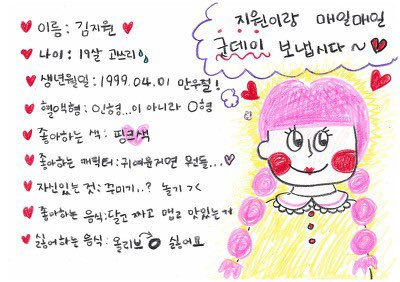 지원이랑 매일매일
굿데이 보냅시다~
이름: 김지원
나이: 19살 고쓰리
생년월일: 1999.04.01 만우절!
혈액형: 인형...이 아니라 O형
좋아하는 색: 핑크색
좋아하는 캐릭터: 귀여움지면 뭔들...
자신있는 것: 꾸미기..? 놀기 ㅋ
좋아하는 음식: 달고 짜고 맵고 맛있는거
싫어하는 음식: 올리브 싫어요